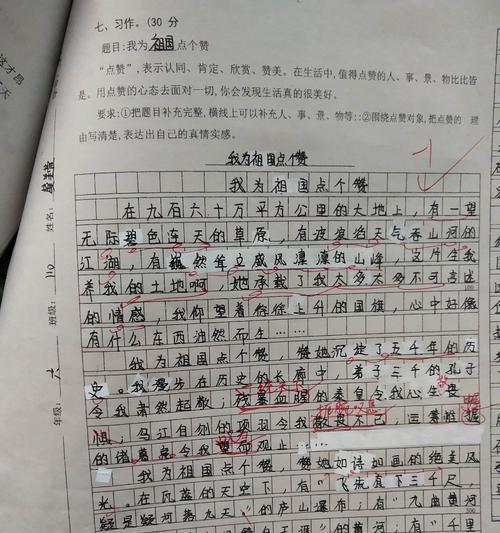 这才昂
天
七、习作。(30 分
题目:我为祖国点个赞
“点赞”,表示认同、肯定、欣赏、赞美。在生活中,值得点赞的人、事、景、物比比皆
是。用点赞的心态去面对一切,你会发现生活真的很美好。
要求:①把题目补充完整,横线上可以补充人、事、景、物等;②围绕点赞对象,把点赞的 理
由写清楚,表达出自己的真情实感。
我为祖国点个赞
我为祖国点个赞
在九百六十万平方公里的大地上,有一望
无际碧色连天的草原,有波浪滔天气吞山河的
江湖,有巍然耸立威风凛凛的山峰,这片生我
养我的土地啊,她承载了我太多太多不可言述
的情感,我仰望着徐徐上升的国旗,心中好像
有什么在西油然而生……
我为祖国点个赞,赞她沉淀了五千年的历
史。我漫步在历史的长廊中,弟子三千的孔子
令我肃然起敬;残暴血腥的秦皇令我心生畏
惧;乌江自刎的项羽令我敬投不已;运筹帷握
的诸葛亮令我望而观止……
我为祖国点个赞,赞她如诗如画的绝美风
光。在瓦蓝的天空下,有“飞流直下三千尺,
疑是疑河落九天”的庐山瀑布;有“九曲黄河
的黄河;有“千里
姓名:
班级:
年级:六
100
300